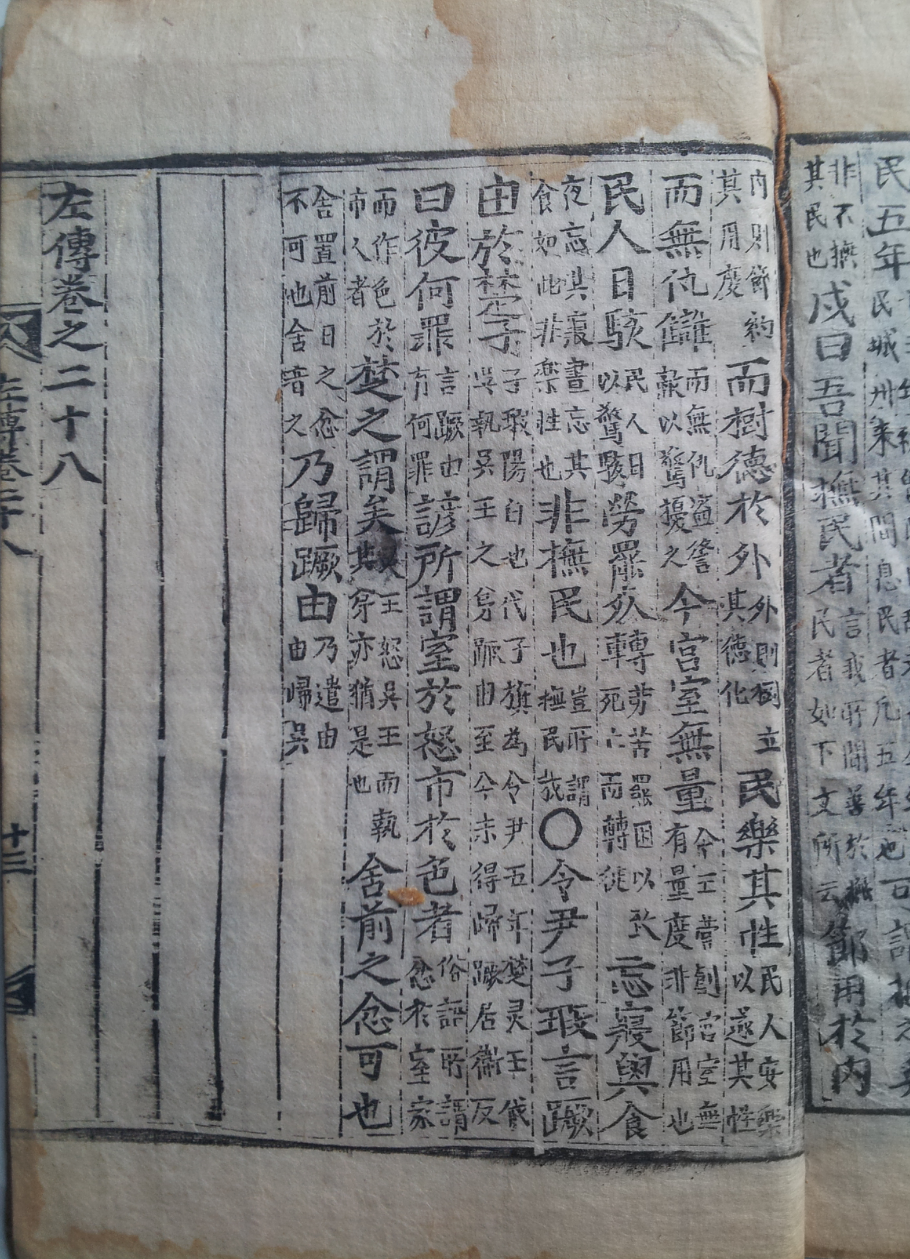 非不撫
其民也戍曰吾聞撫民者言我所聞善於撫民者如下文所云節用於內
內則節約
其用度而樹德於外外則樹立其德化民樂其性民人安樂以遂其性
而無仇讎而無仇盜讐敵以驚擾之今宮室無量今王嘗創宮室無有量度非節用也
民人日駭民人日以驚駭勞罷死轉勞苦罷困以致死亡而轉徙忘寢與食
夜忘其寢晝忘其食如此非樂性也非撫民也豈所謂撫民哉○令尹子瑕言蹶
由於楚子子瑕陽匄也代子旗為令尹五年楚灵王伐吳執吳王之弟蹶由至今未得歸蹶居衛反
曰彼何罪言蹶由有何罪諺所謂室於怒市於色者俗語所謂忿於室家
而作色於市人者楚之謂矣王怒吳王而執其弟亦猶是也舍前之忿可也
舍置前日之忿不可也舍音之乃歸蹶由乃遣由由歸吳
左傳卷之二十八
左傳卷二十八
十三